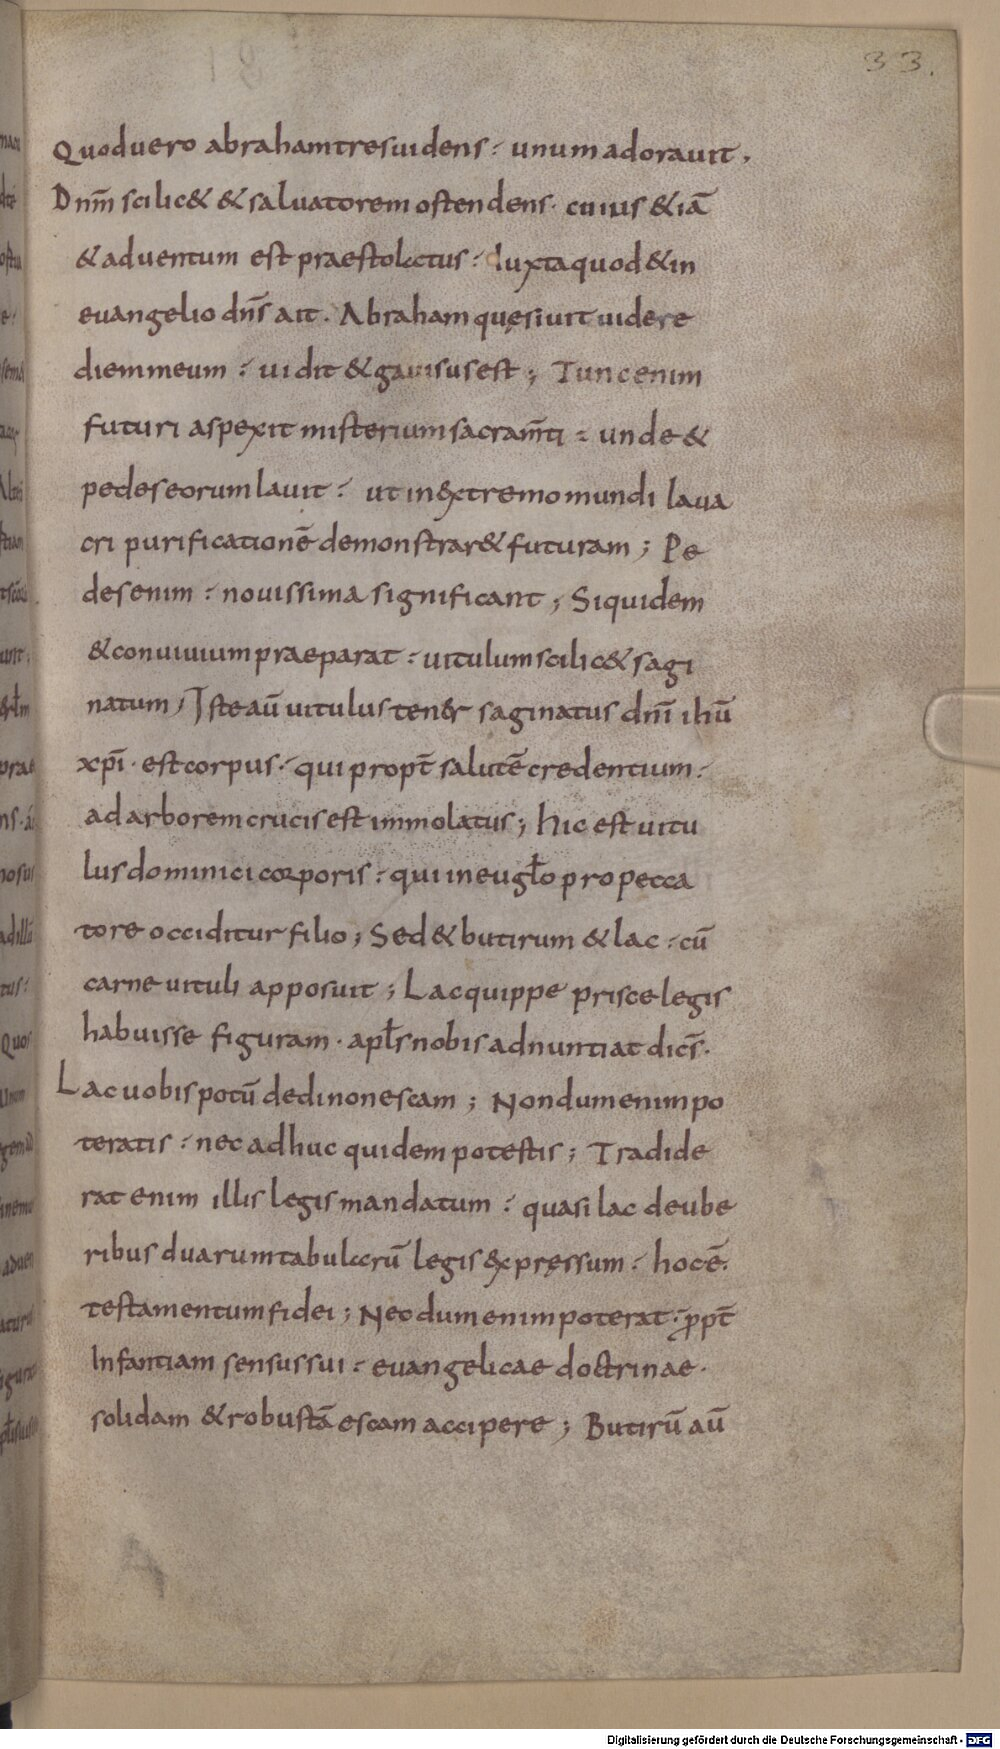 33.
Quod uero abraham tres uidens · unum adorauit .
Dnm̄ scilic& & saluatorem ostendens · cuius &iā
& aduentum est praestolatus · Iuxta quod & in
euangelio dn̄s ait . Abraham quęsiuit uidere
diem meum · uidit & gauisus est ; Tunc enim
futuri aspexit misterium sacram̄ti · unde &
pedes eorum lauit · ut in &xtremo mundi laua
cri purificationē demonstrar& futuram ; Pe
des enim · nouissima significant ; Siquidem
& conuiuium praeparat · uitulum scilic& sagi
natum , Iste aū uitulus tener saginatus dn̄i ihū
xpī · est corpus · qui propt̄ salutē credentium ·
ad arborem crucis est immolatus ; hic est uitu
lus dominici corporis · qui in eugł̄o pro pecca
tore occiditur filio ; Sed & butirum & lac · cū
carne uituli apposuit ; Lac quippe prisce legis
habuisse figuram · apł̄s nobis adnuntiat dic̄s ·
Lac uobis potū dedi non escam ; Nondum enim po
teratis · nec adhuc quidem potestis ; Tradide
rat enim illis legis mandatum · quasi lac de ube
ribus duarum tabularū legis &xpręssum · hoc ē ·
testamentum fidei ; Necdum enim poterat · p̄pt̄
Infantiam sensus sui · euangelicae doctrinae ·
solidam & robustā escam accipere ; Butirū aū
Digitalisierung gefördert durch die Deutsche Forschungsgemeinschaft - DFG